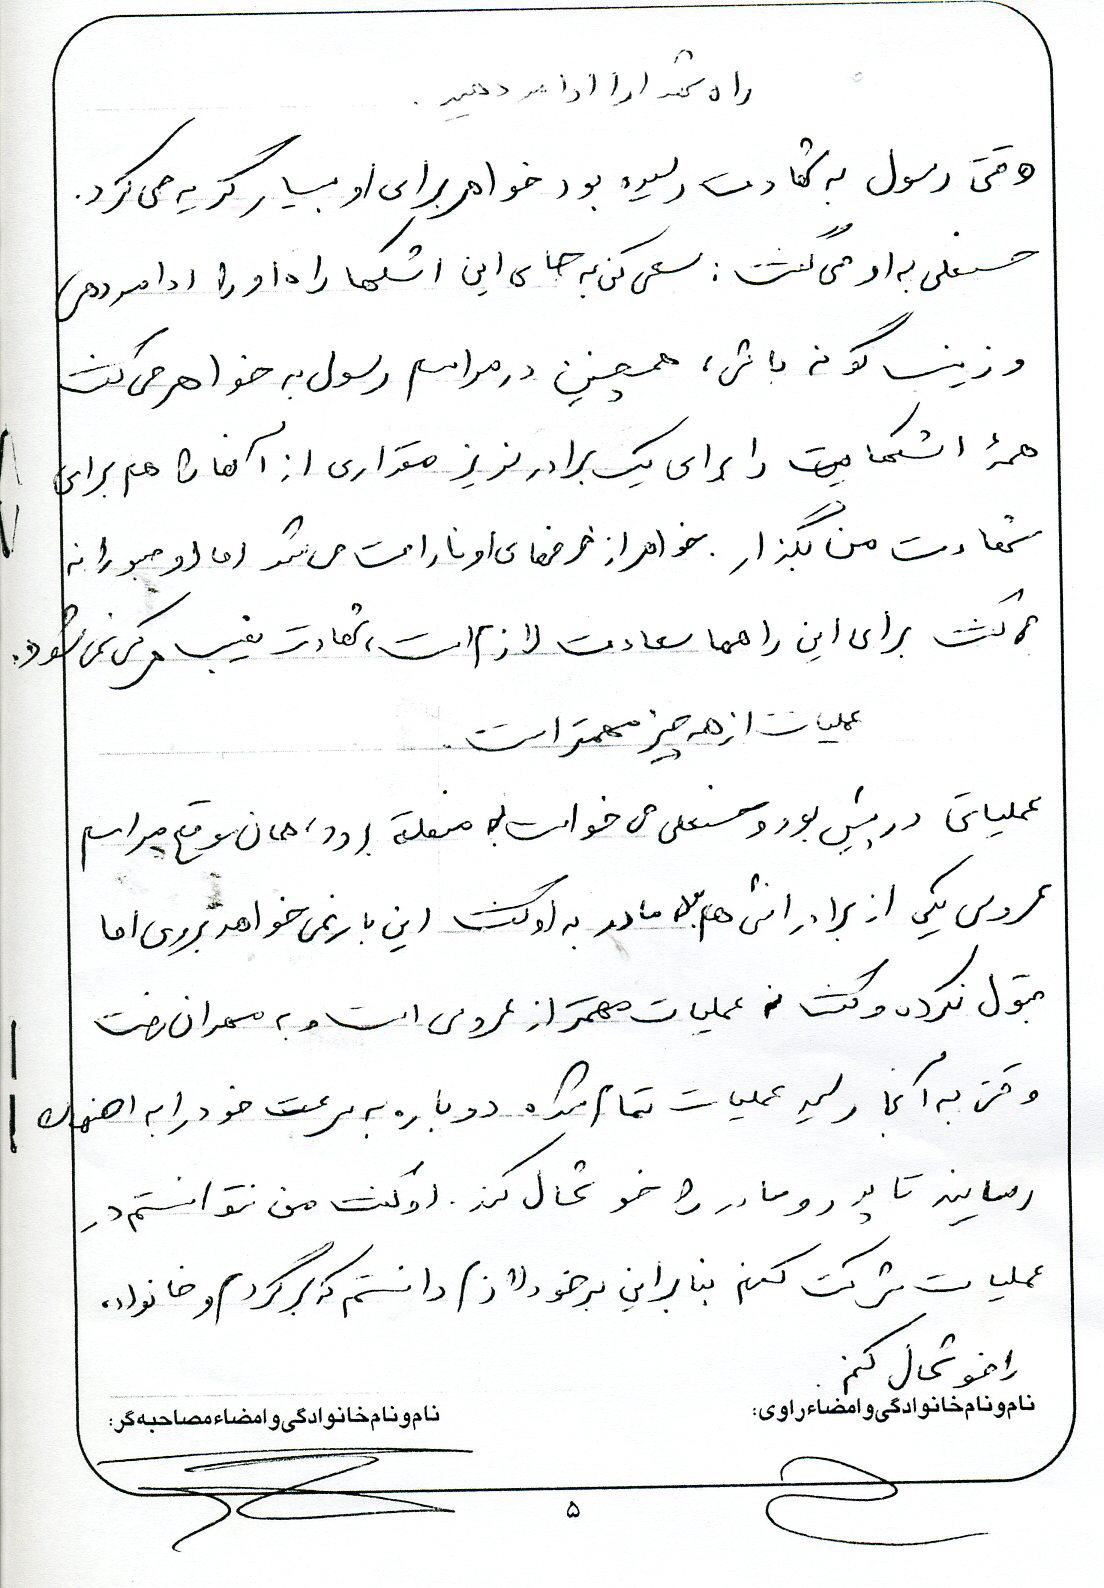 راه شهدا را ادامه دهید.
وقتی رسول به شهادت رسیده بود خواهر برای او بسیار گریه می کرد.
حسنعلی به او می گفت: سعی کن به جای این اشکها راه او را ادامه دهی
و زینب گونه باش، همچنین در مراسم رسول به خواهر می گفت
همۀ اشکهایت را برای یک برادر نریز مقداری از آنها را هم برای
شهادت من بگذار. خواهر از حرفهای او ناراحت می شد اما او صبورانه
می گفت برای این راهها سعادت لازم است، شهادت نصیب هر کسی نمی شود.
عملیات از همه چیز مهمتر است.
عملیاتی در پیش بود و حسنعلی می خواست به منطقه برود، همان موقع مراسم
عروسی یکی از برادرانش هم بود مادر به او گفت این بار نمی خواهد بروی اما
قبول نکرده و گفت نه عملیات مهمتر از عروسی است و به مهران رفت
وقتی به آنجا رسید عملیات تمام شده دوباره به سرعت خود را به اصفهان
رسانید تا پدر و مادر را خوشحال کند. او گفت من نتوانستم در
عملیات شرکت کنم بنابراین بر خود لازم دانستم که برگردم و خانواده
را خوشحال کنم.
نام و نام خانوادگی و امضاء راوی:
نام و نام خانوادگی و امضاء مصاحبه گر:
۵